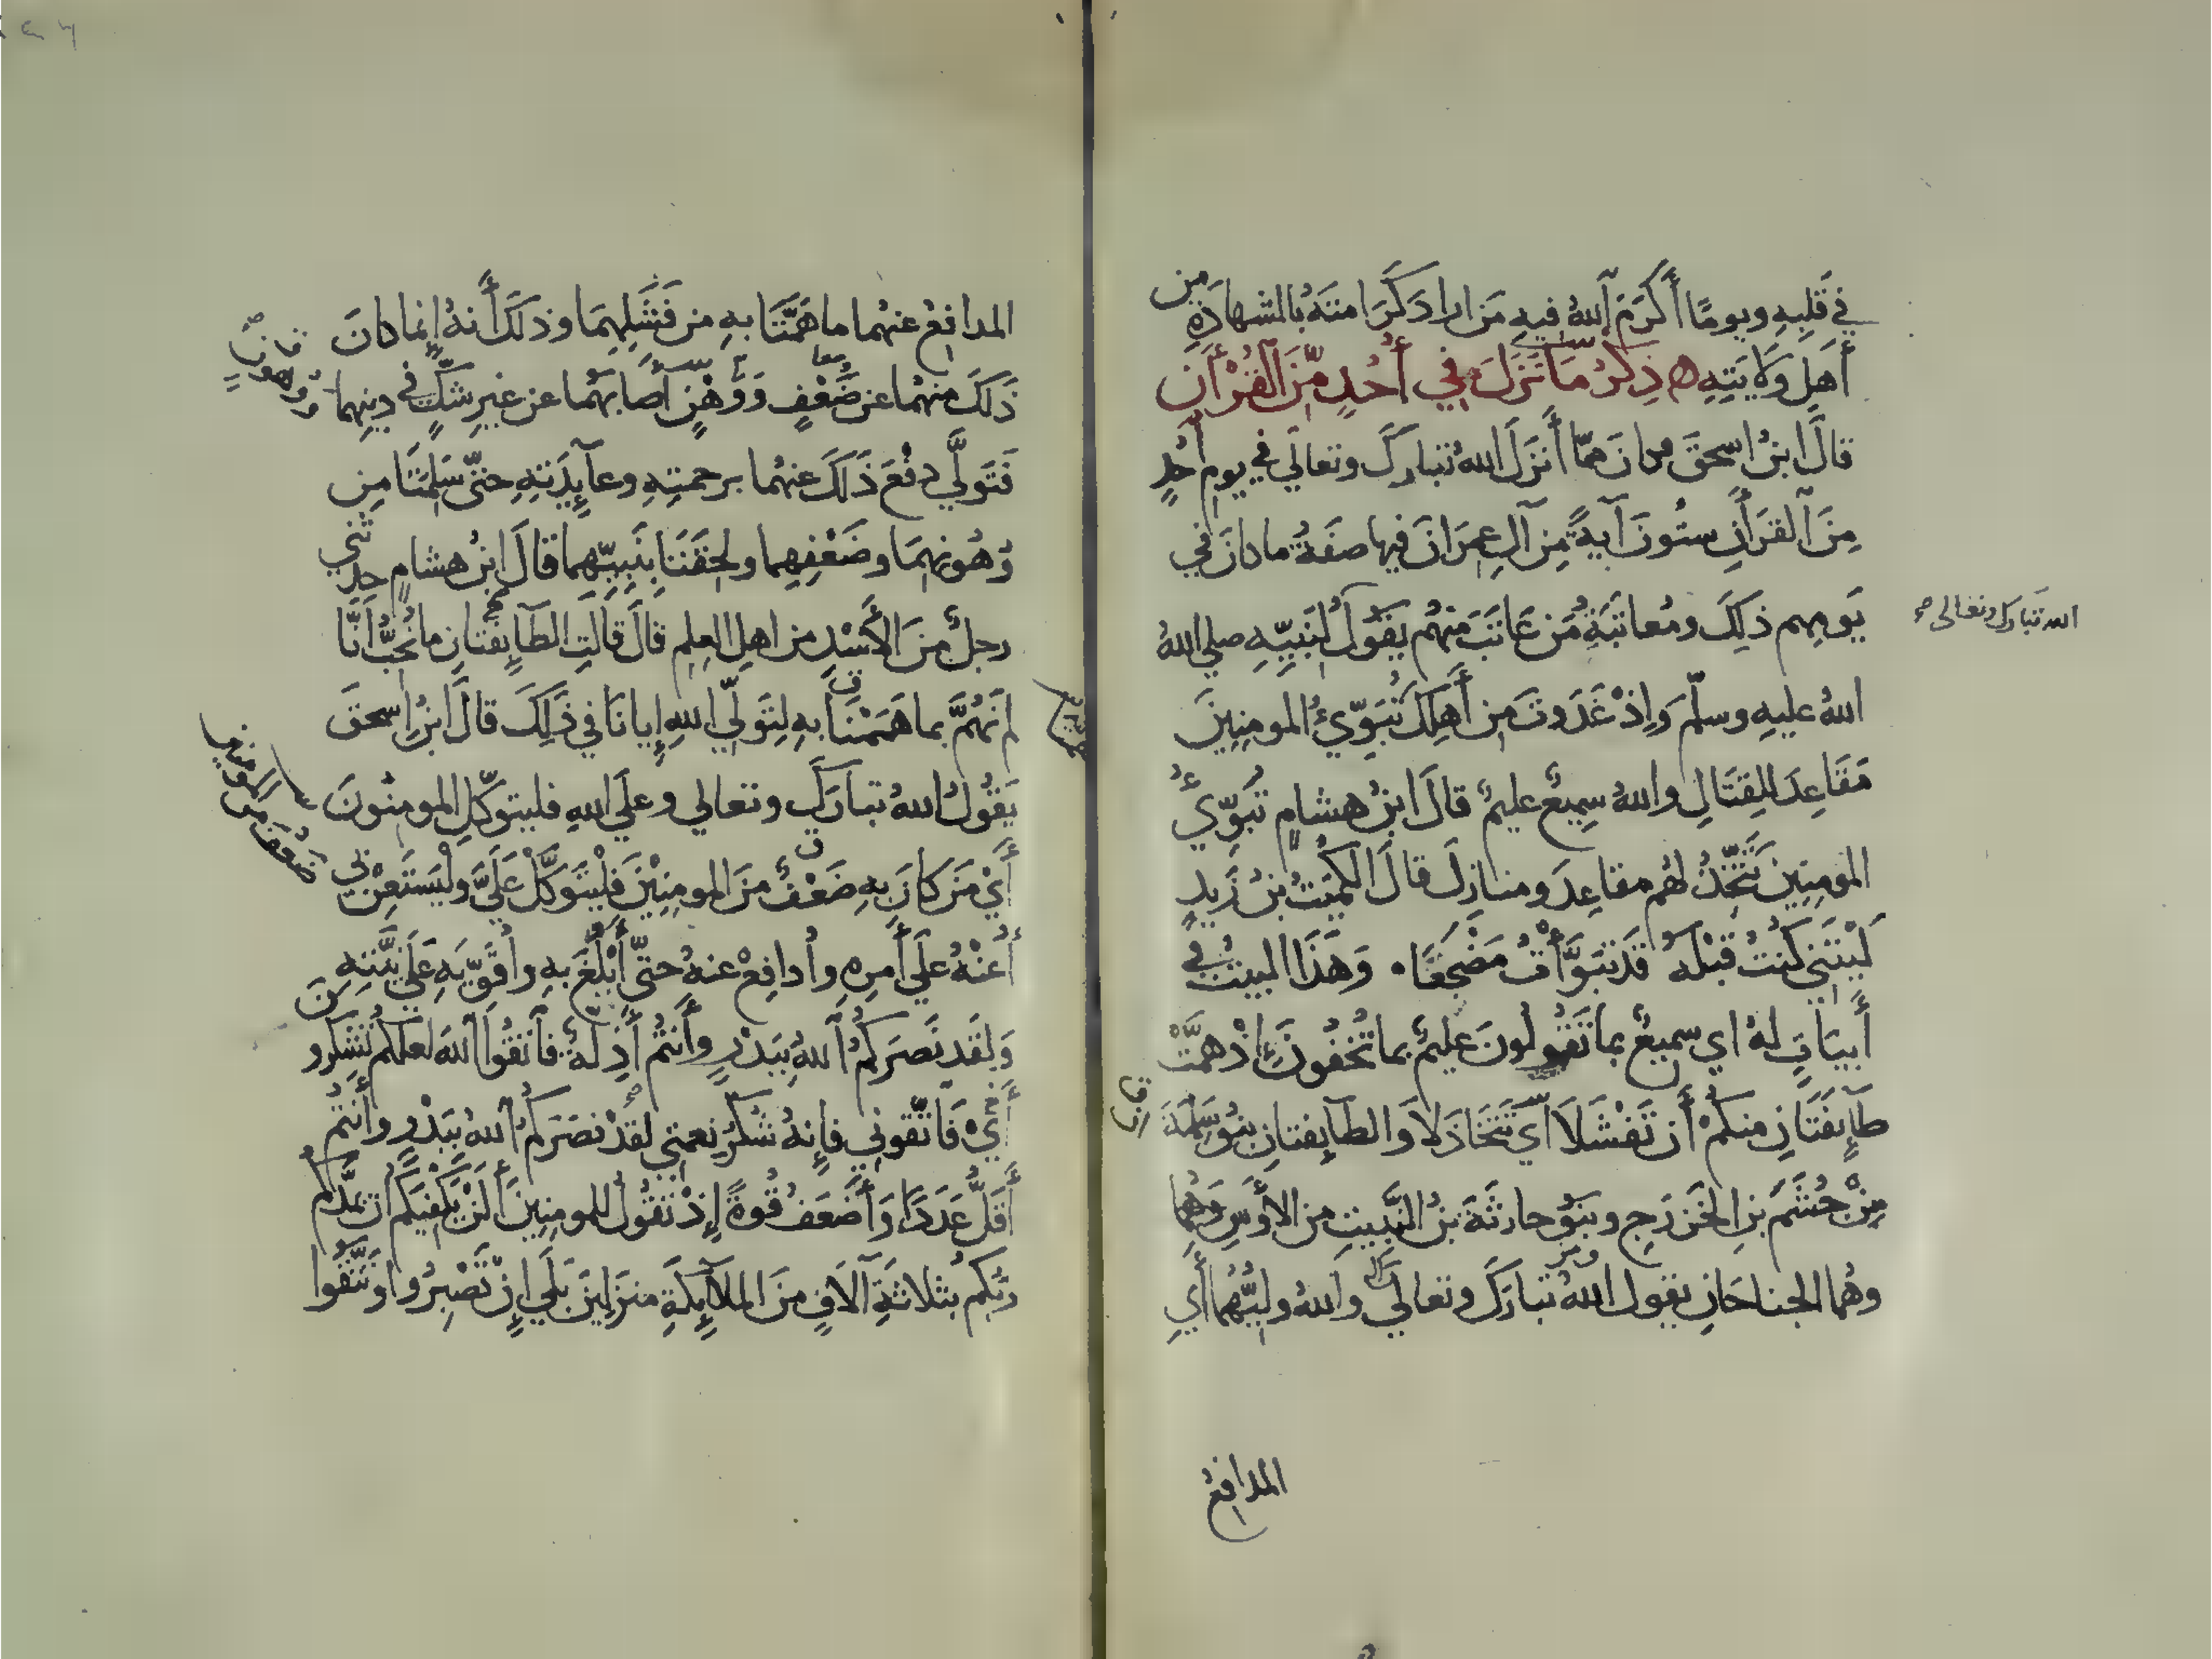 في قلبِهِ ويومًا أَكرَمَ اللهُ فيهِ مَن اراد كَرَامتَهُ بالشهادَةِ مِن
أَهلِ وَلَايَتِهِ ه ذِكْرُ مَا نَزَلَ في أُحُدٍ مِّنَ القُرْآنِ
قالَ ابنُ اسحقَ فكانَ ممّا أَنزَلَ اللهُ تبارَكَ وتعالَي في يومِ أُحُدٍ
مِنَ القرآنِ ستُونَ آيةً مِن آلِ عِمرَانَ فيها صفَةُ ما كانَ في
يَومِهِم ذلِكَ ومُعاتَبَةُ مَن عَاتَبَ مِنهُم يَقُولُ لِنَبِيِّهِ صلي اللهُ
الله تبارك وتعالى صح
اللهُ عليهِ وسلَّم وَاِذْ غَدَوتَ مِن أَهلِكَ تُبَوِّيُ المومِنِينَ
مَقَاعِدَ لِلقِتَالِ واللهُ سمِيعٌ عليمٌ قالَ ابنُ هشامٍ تُبَوِّيُ
المومِنِينَ تَتَّخِذُ لهُم مقاعِدَ ومنازِلَ قالَ الكُمَيتُ بنُ زَيدٍ
لَيْتَنِي كُنتُ قَبْلَهُ قَد تَبَوَّأْتُ مَضْجَعًا٠ وَهَذَا البيتُ في
أَبيَاتٍ لهُ اي سميعٌ بما تَقُولُونَ عليمٌ بما تُخْفُونَ إِذْ همَّتْ
طَآئِفَتَانِ مِنكُمْ أَن تَفْشَلَا أَي تَتَخَاذَلَا وَالطآيِفتانِ بنُو سَلِمَةَ
مِنْ جُشَمَ بنِ الخَزرَجِ وبنُو حارثَةَ بنُ النَّبِيتِ مِن الأَوسِ وَهُما
وهُما الجناحَانِ يقول اللهُ تبارَكَ وتعالَي وَاللهُ وليُّهُما أَي
المدافعُ
المدافِعُ عنهُما ما هَمَّتَا بهِ مِن فَشَلِهِمَا وذلكَ أَنهُ إِنما كانَ
ذَلكَ منهُما عن ضَعْفٍ وَوَهْنٍ أَصابَهُما عن غيرِ شكٍّ في دينِهما
فَتَولَّي دفْعَ ذَلكَ عنهُما برحمتِهِ وعآئِدَتِهِ حتّى سَلِمَتَا مِن
وُهُونِهِمَا وضَعْفِهِما ولحِقَتَا بِنَبِيِّهِما قالَ ابنُ هشامٍ حدثني
رجلٌ مِنَ الأَسْدِ مِن اهلِ العِلمِ قالَ قالتِ الطآيِفتانِ ما نُحِبُّ أَنَّا
لم نَهُمَّ بما هَمَمْنَا بهِ لِتَوَلِّي اللهِ إِيانَا في ذَلِكَ قالَ ابنُ اِسحقَ
يَقُولُ اللهُ تبارَكَ وتعالي وعلَي اللهِ فليتوكَّلِ المومِنُونَ
أَيْ مَن كانَ بِهِ ضَعْفٌ مِنَ المومِنِيْنَ فَلْيَتَوكَّلْ عَلَيَّ ولْيَستَعِنْ بي
أُعنْهُ علَي أَمرِهِ وأُدافِعْ عنهُ حتّي أَبْلُغَ بهِ وأُقَوِّيَهِ علَي نِيَّتِهِ
وَلقَد نَصَرَكُمُ اللهُ بِبَدْرٍ وأَنتُم أَذِلَّةٌ فاتّقُوا اللهَ لعلَّكُم تَشكُرونَ
أَيْ فَاتَّقونِي فإِنهُ شُكْرُ نِعمتِي لقدْ نصَرَكُمُ اللهُ بِبَدْرٍ وأَنتُم
أَقَلُّ عَدَدًا وَأَضعَفُ قُوةً إِذْ تقُولُ للمومِنِينَ أَلَنْ يَكْفِيَكُم أَن يُمِدَّكُم
ربُّكُم بثلاثَةِ آلَافٍ مِنَ الملآئِكَةِ منزَلِينَ بَلَي إِنْ تَصْبِرُوا وتَتَّقُوا